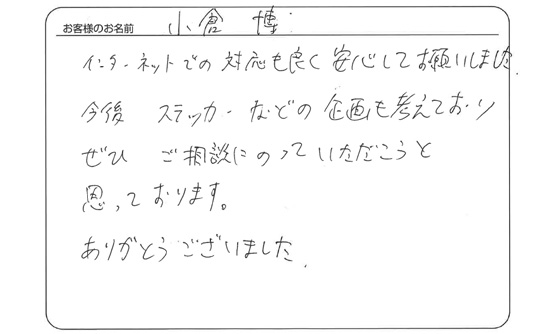 お客様のお名前 小倉 博
インターネットでの対応も良く安心してお願いしました.
今後 ステッカーなどの企画も考えており
ぜひ ご相談にのっていただこうと
思っております。
ありがとうございました.